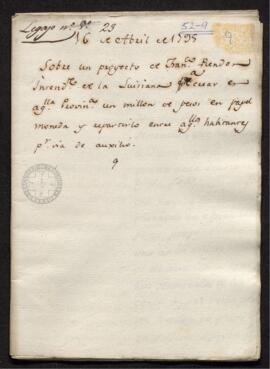 Legajo nº 9º 23
52-9
9
16 de Abril de 1795
Sobre un proyecto de Fran.co Rendon
Intend.te de la Luisiana crear en
aq.lla Provin.a un millon de pesos en papel
moneda y repartirlo entre aq.llos habitantes
p.r via de auxilio.
9